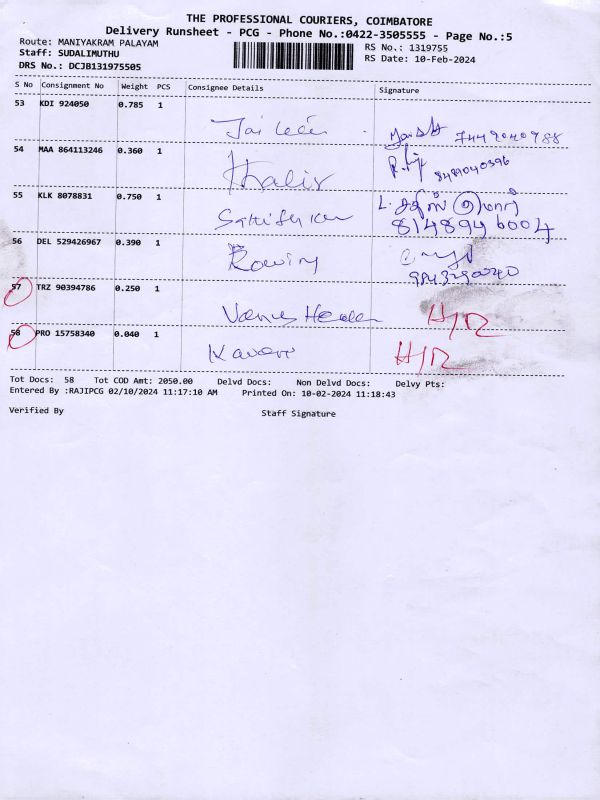 THE PROFESSIONAL COURIERS, COIMBATORE
Delivery Runsheet - PCG - Phone No.:0422-3505555 - Page No.:5
Route: MANIYAKRAM PALAYAM
RS No.: 1319755
Staff: SUDALIMUTHU
RS Date: 10-Feb-2024
DRS No.: DCJB131975505
S No Consignment No Weight PCS Consignee Details Signature
53 KDI 924050 0.785 1
7449040988
54 MAA 864113246 0.360 1
8489040396
55 KLK 8078831 0.750 1
8148946004
56 DEL 529426967 0.390 1
Rowiny
57 TRZ 90394786 0.250 1
H/R
58 PRO 15758340 0.040 1
Kaveri H/R
Tot Docs: 58 Tot COD Amt: 2050.00 Delvd Docs: Non Delvd Docs: Delvy Pts:
Entered By :RAJIPCG 02/10/2024 11:17:10 AM Printed On: 10-02-2024 11:18:43
Verified By Staff Signature